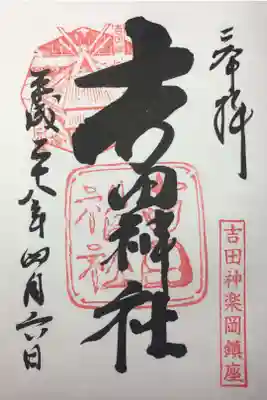 奉拝
吉田神社
平成二十八年四月六日
吉田神楽岡鎮座